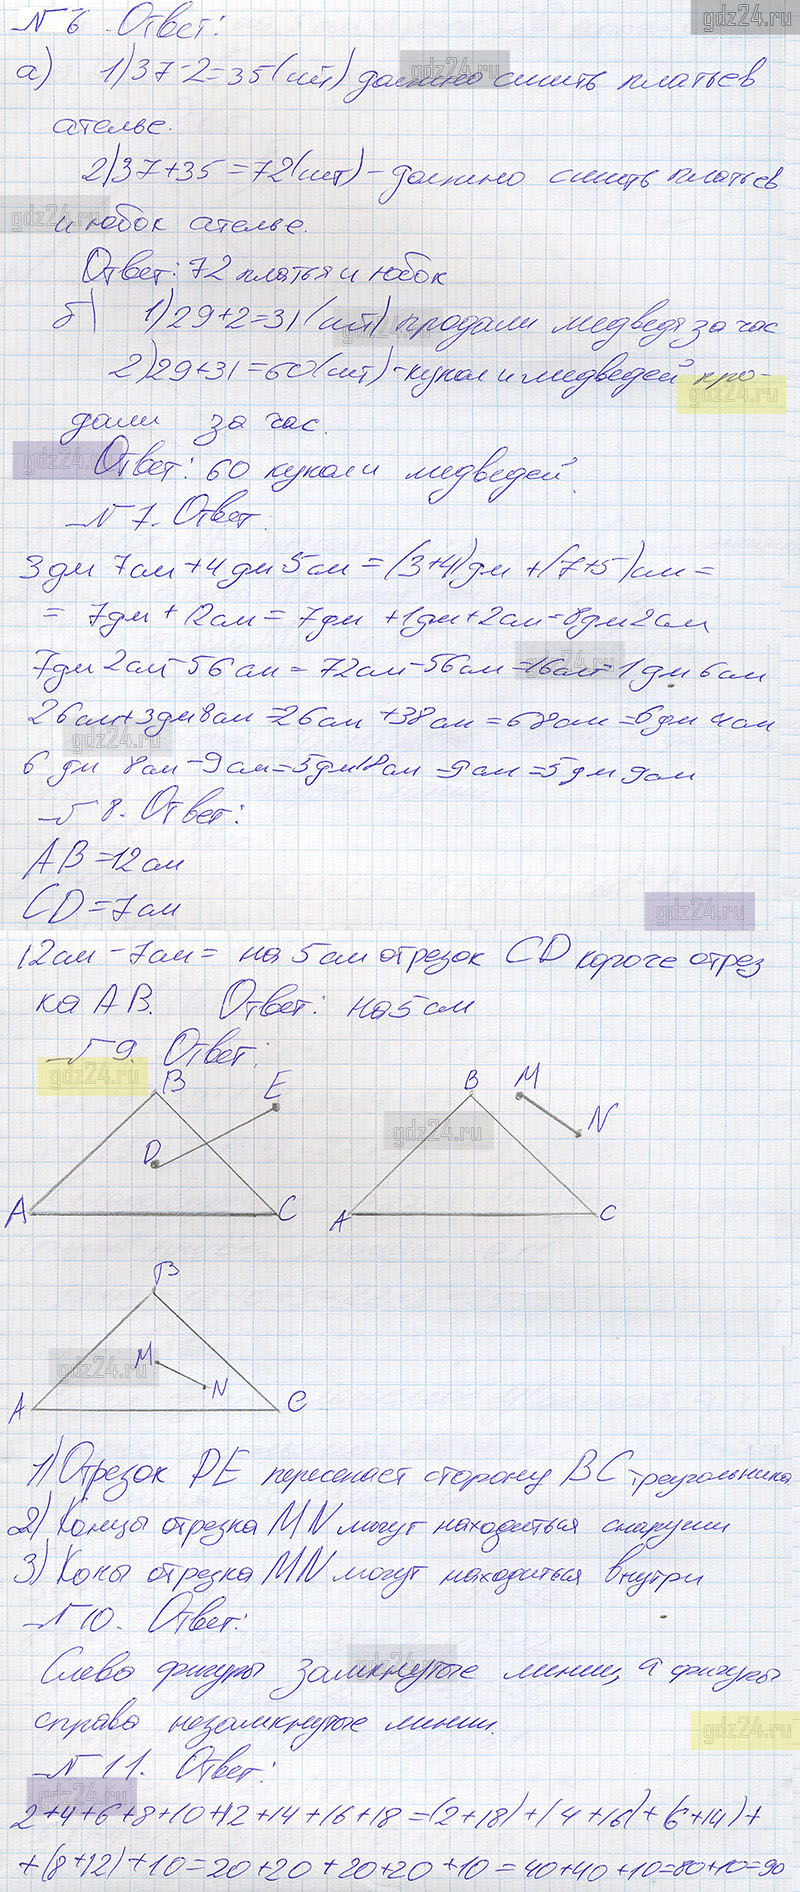 gdz24.ru
№ 6 Ответ:
а) 1) 37-2=35 (шт) должно сшить платьев
ателье.
2) 37+35=72 (шт) - должно сшить платьев
и юбок ателье.
Ответ: 72 платья и юбок
б) 1) 29+2=31 (шт) продали медведя за час
2) 29+31=60 (шт) - кукол и медведей про-
дали за час.
Ответ: 60 кукол и медведей.
№ 7. Ответ
3 дм 7 см + 4 дм 5 см = (3+4) дм + (7+5) см =
= 7 дм + 12 см = 7 дм + 1 дм + 2 см = 8 дм 2 см
7 дм 2 см - 56 см = 72 см - 56 см = 16 см = 1 дм 6 см
26 см + 3 дм 8 см = 26 см + 38 см = 68 см = 6 дм 4 см
6 дм 8 см - 9 см = 5 дм 18 см - 9 см = 5 дм 9 см
№ 8. Ответ:
AB = 12 см
CD = 7 см
12 см - 7 см = на 5 см отрезок CD короче отрез
ка AB. Ответ: на 5 см
№ 9. Ответ:
B E B M
D N
A C A C
B
M
N
A C
1) Отрезок DE пересекает сторону BC треугольника
2) Концы отрезка MN могут находиться снаружи
3) Коны отрезка MN могут находиться внутри
№ 10. Ответ:
Слева фигуры замкнутые линии, а фигуры
справа незамкнутые линии.
№ 11. Ответ:
2+4+6+8+10+12+14+16+18=(2+18)+(4+16)+(6+14)+
+(8+12)+10=20+20+20+20+10=40+40+10=80+10=90